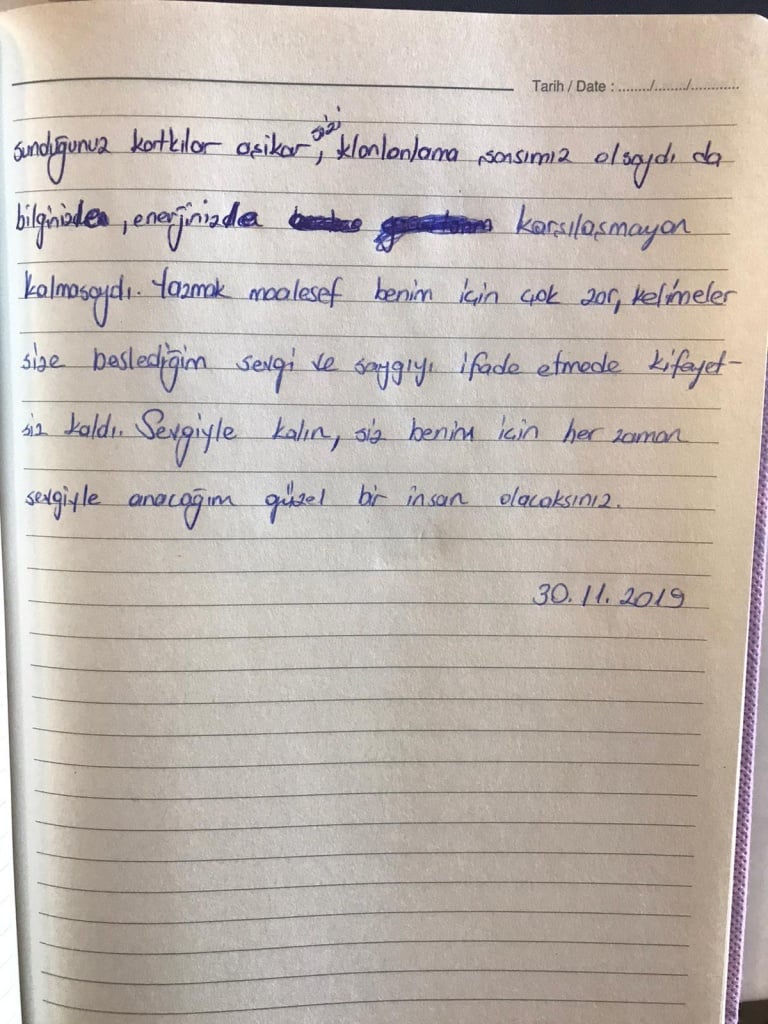 Tarih / Date : ......../......../............
sunduğunuz katkılar aşikar, sizi klonlanlama şansımız olsaydı da
bilginizden, enerjinizden karşılaşmayan
kalmasaydı. Yazmak maalesef benim için çok zor, kelimeler
size beslediğim sevgi ve saygıyı ifade etmede kifayet-
siz kaldı. Sevgiyle kalın, siz benim için her zaman
sevgiyle anacağım güzel bir insan olacaksınız.
30.11.2019